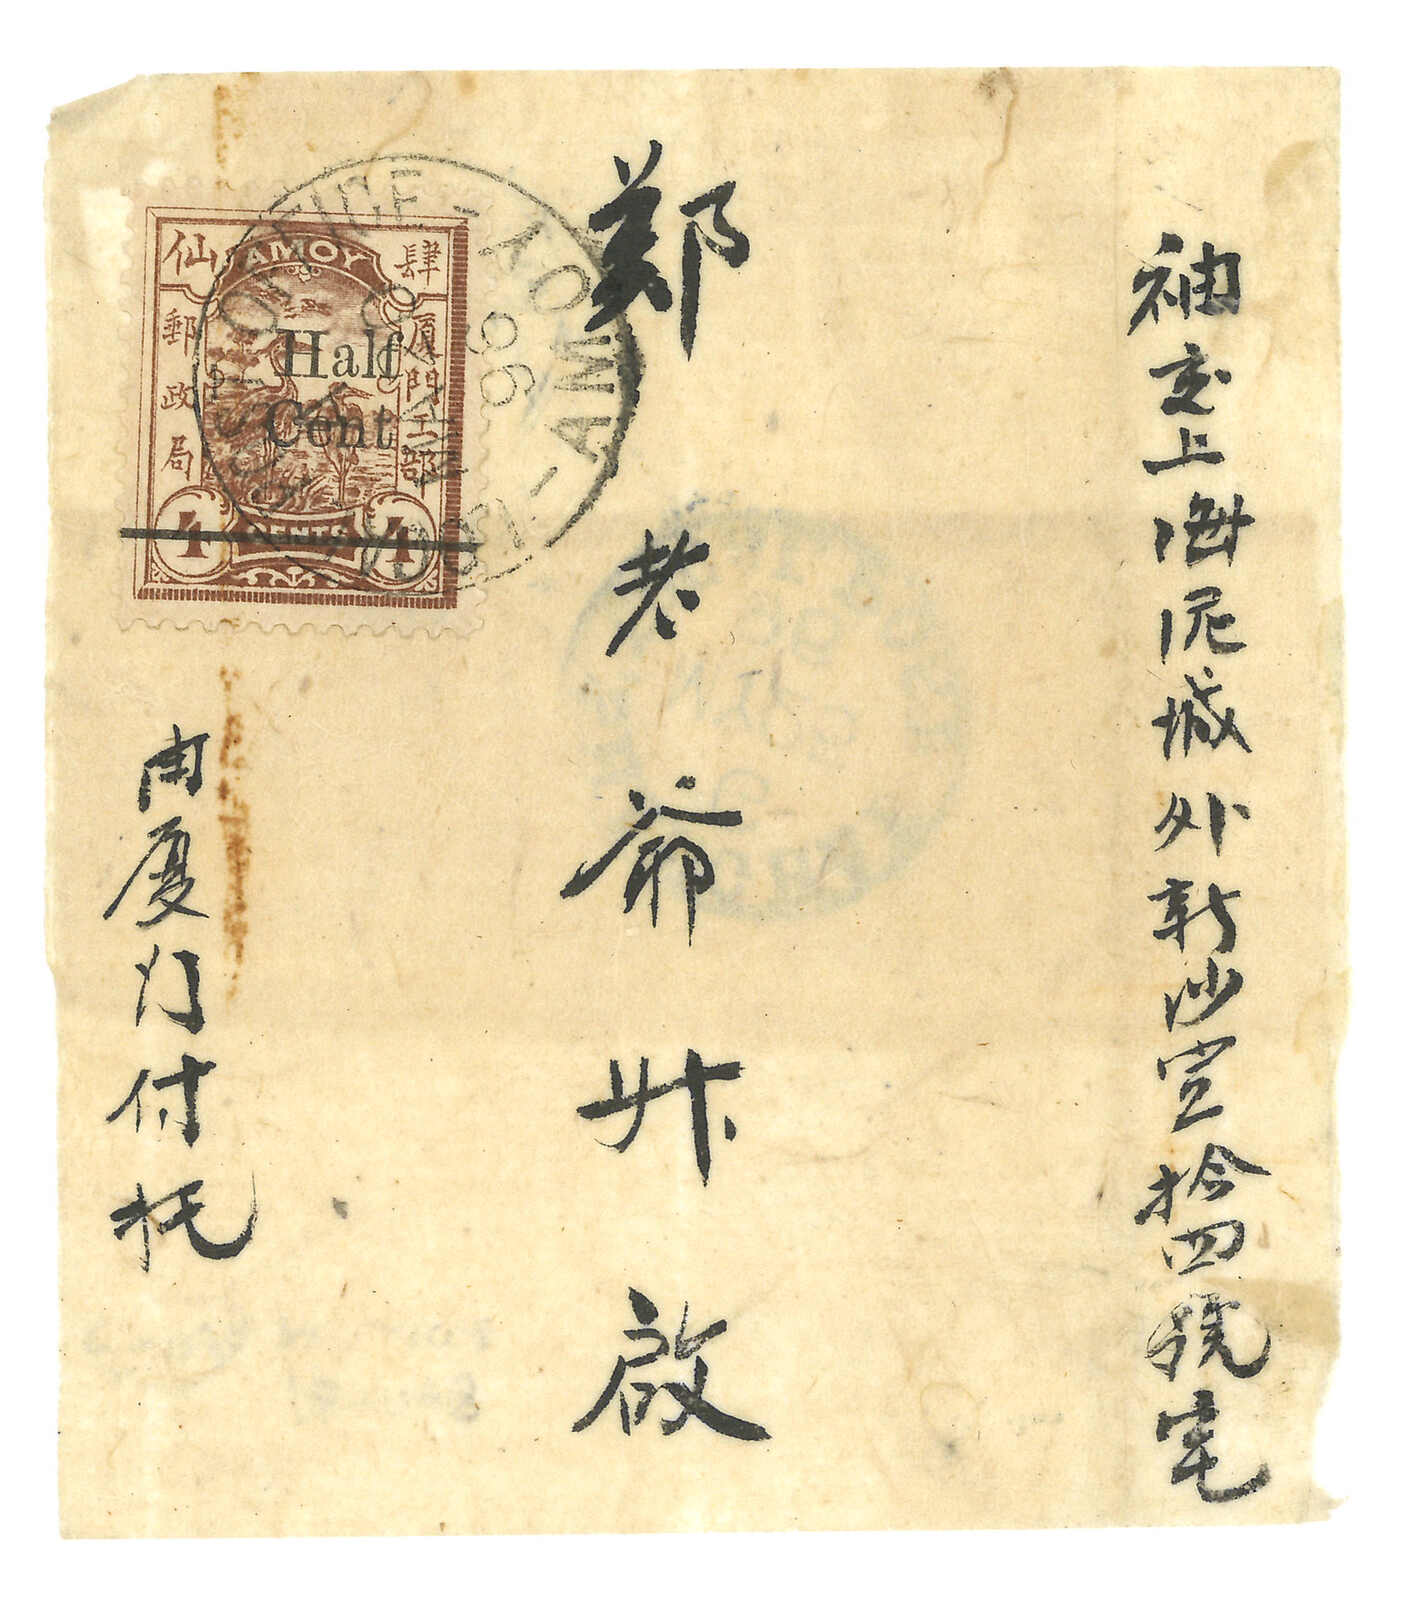 袖交上海泥城外新沙宣拾四號宅
鄭老爺升啟
由厦门付托
AMOY
肆
仙
厦門工部
郵政局
Half
Cent
4 CENTS 4
LOCAL POST OFFICE - AMOY
JAN
96